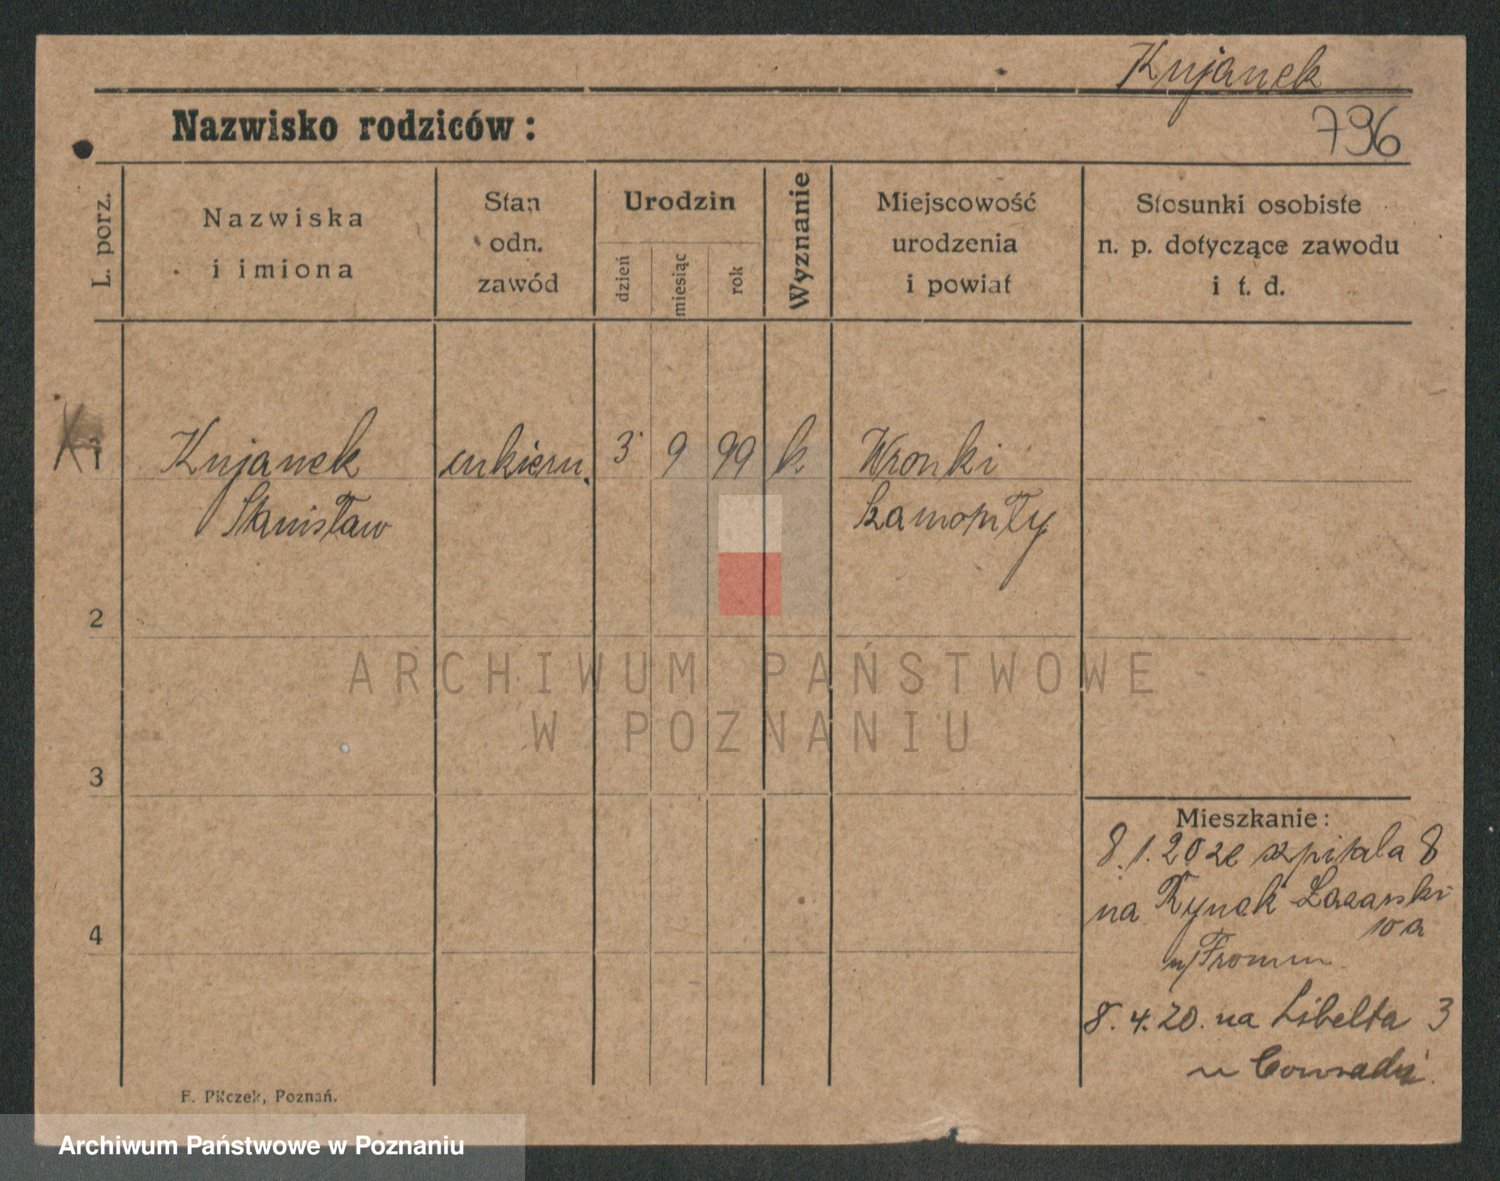 Kujanek
796
Nazwisko rodziców:
L. porz.
Nazwiska
i imiona
Stan
odn.
zawód
Urodzin
dzień
miesiąc
rok
Wyznanie
Miejscowość
urodzenia
i powiat
Stosunki osobiste
n. p. dotyczące zawodu
i t. d.
1
Kujanek cukiern. 3 9 99 k. Wronki
Stanisław Szamotuły
2
ARCHIWUM PAŃSTWOWE
W POZNANIU
3
Mieszkanie:
8.1.20 ze szpitala 8
na Rynek Łazarski
10 a
u Fromm
4
8.4.20. na Libelta 3
u
F. Pilczek, Poznań.
Archiwum Państwowe w Poznaniu